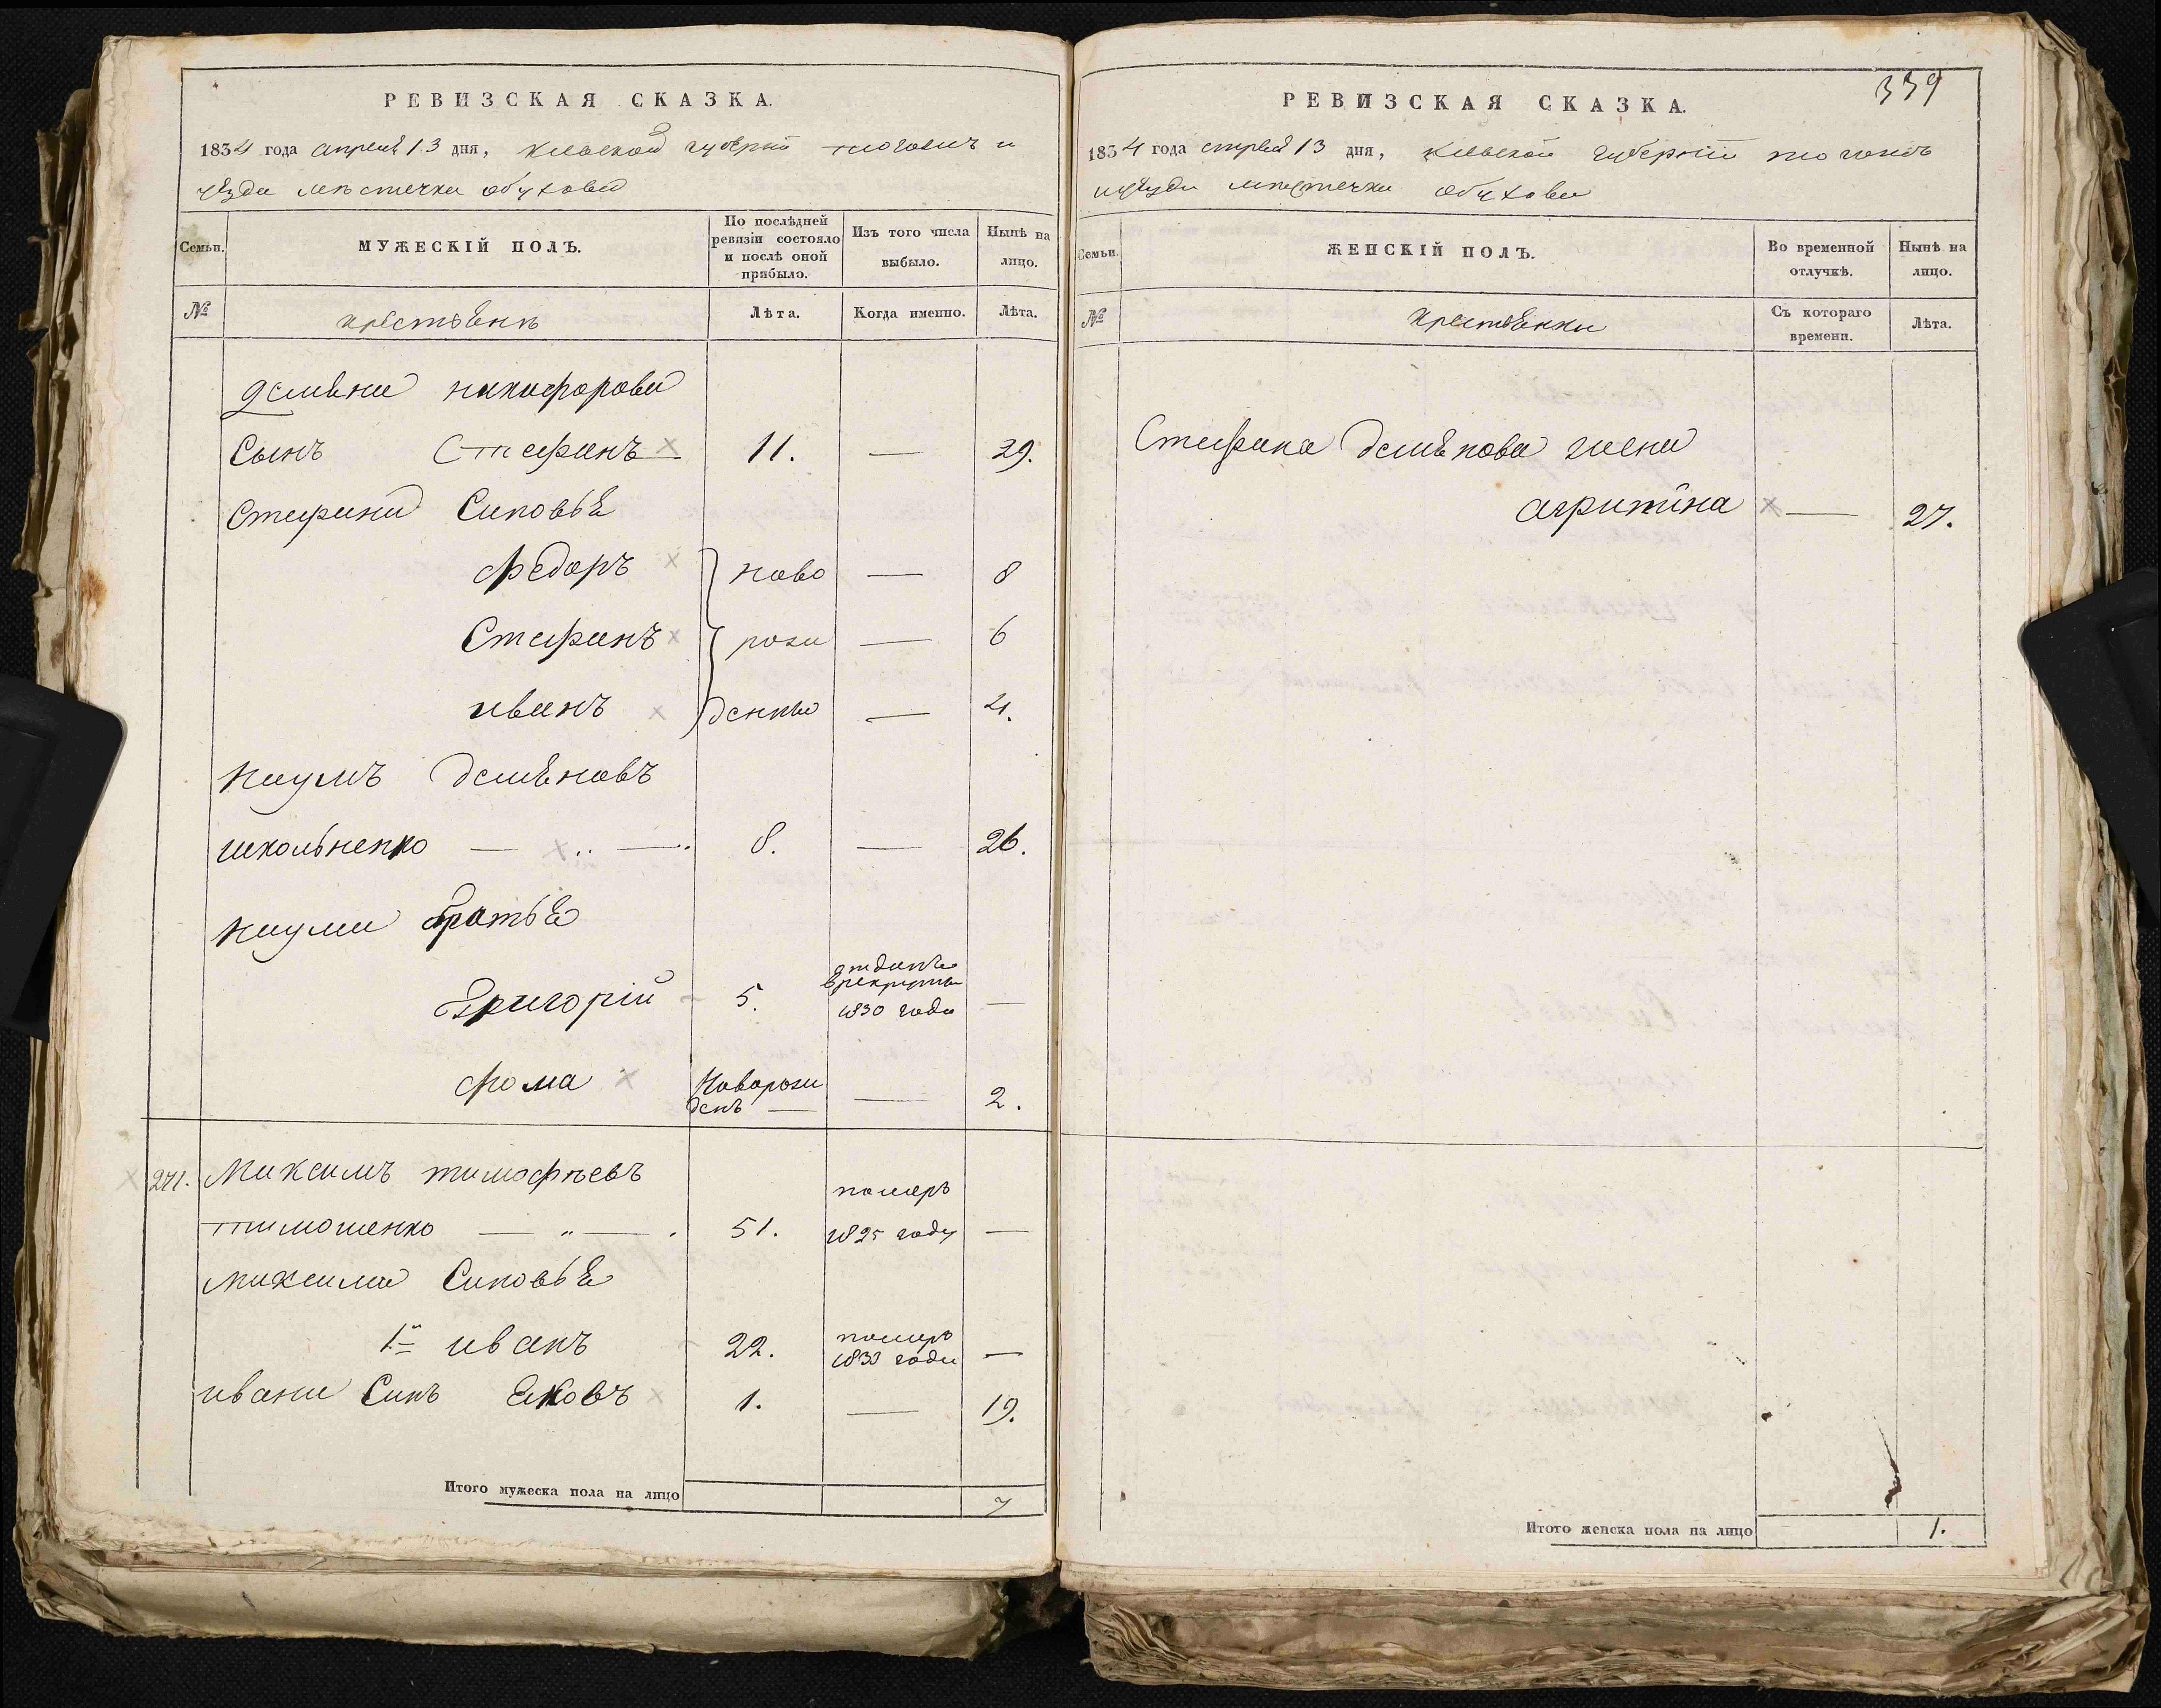 РЕВИЗСКАЯ СКАЗКА.
1834 года апреля 13 дня, Киевской губернии
уезда местечка обухова
Семьи.
МУЖЕСКІЙ ПОЛЪ.
По послѣдней ревизіи состояло и послѣ оной прибыло.
Изъ того числа выбыло.
Нынѣ на лицо.
№
крестьене
Лѣта.
Когда именно.
Лѣта.
демьена никифорова
Сынъ Стефанъ 11. — 29.
Стефана Синовье
федоръ ново — 8
Стефанъ рож — 6
иванъ денны — 4.
наумъ демьеновъ
школьненко — „ — 8. — 26.
наума братье
Григорій 5. отданъ в рекруты 1830 года —
фома новорожденъ — — 2.
271. Максимъ тимофѣевъ
тимошенко — „ — 51. померъ 1825 году —
максима Синовье
1й иванъ 22. померъ 1833 года —
ивана Синъ Яковъ 1. — 19.
Итого мужеска пола на лицо 7
339
РЕВИЗСКАЯ СКАЗКА.
1834 года апреля 13 дня, Киевской губерніи
уезда местечка обухова
Семьи.
ЖЕНСКІЙ ПОЛЪ.
Во временной отлучкѣ.
Нынѣ на лицо.
№
крестьенки
Съ котораго времени.
Лѣта.
Стефана демьенова жена
агрипина — 27.
Итого женска пола на лицо 1.